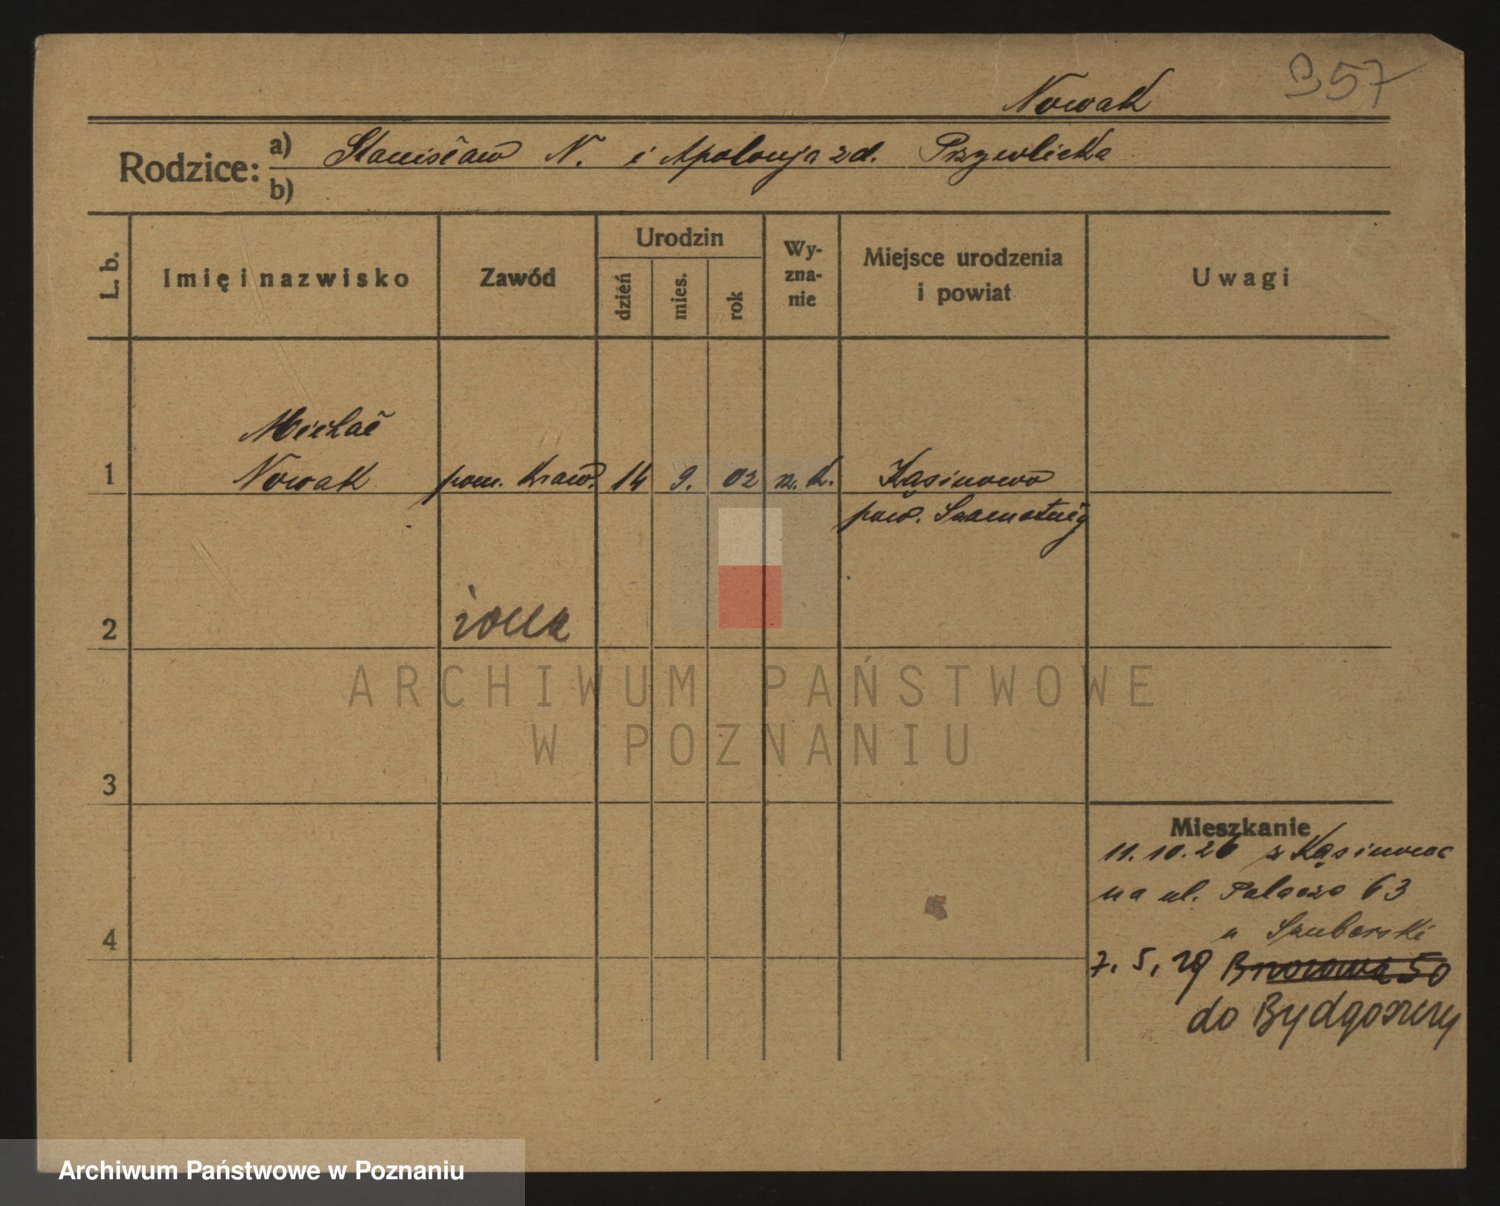 957
Nowak
Rodzice: a) Stanisław N. i Apolonja zd. Przywlicka
b)
L. b. Imię i nazwisko Zawód Urodzin dzień mies. rok Wyznanie Miejsce urodzenia i powiat Uwagi
Michał
1 Nowak pom. kraw. 14 9. 02 rz. k. Kąsinowo
pow. Szamotuły
2 żona
3
Mieszkanie
11.10.26 z Kąsinowa
na ul. Palacza 63
u Szuberski
4
7. 5. 29 50
do Bydgoszczy
ARCHIWUM PAŃSTWOWE
W POZNANIU
Archiwum Państwowe w Poznaniu